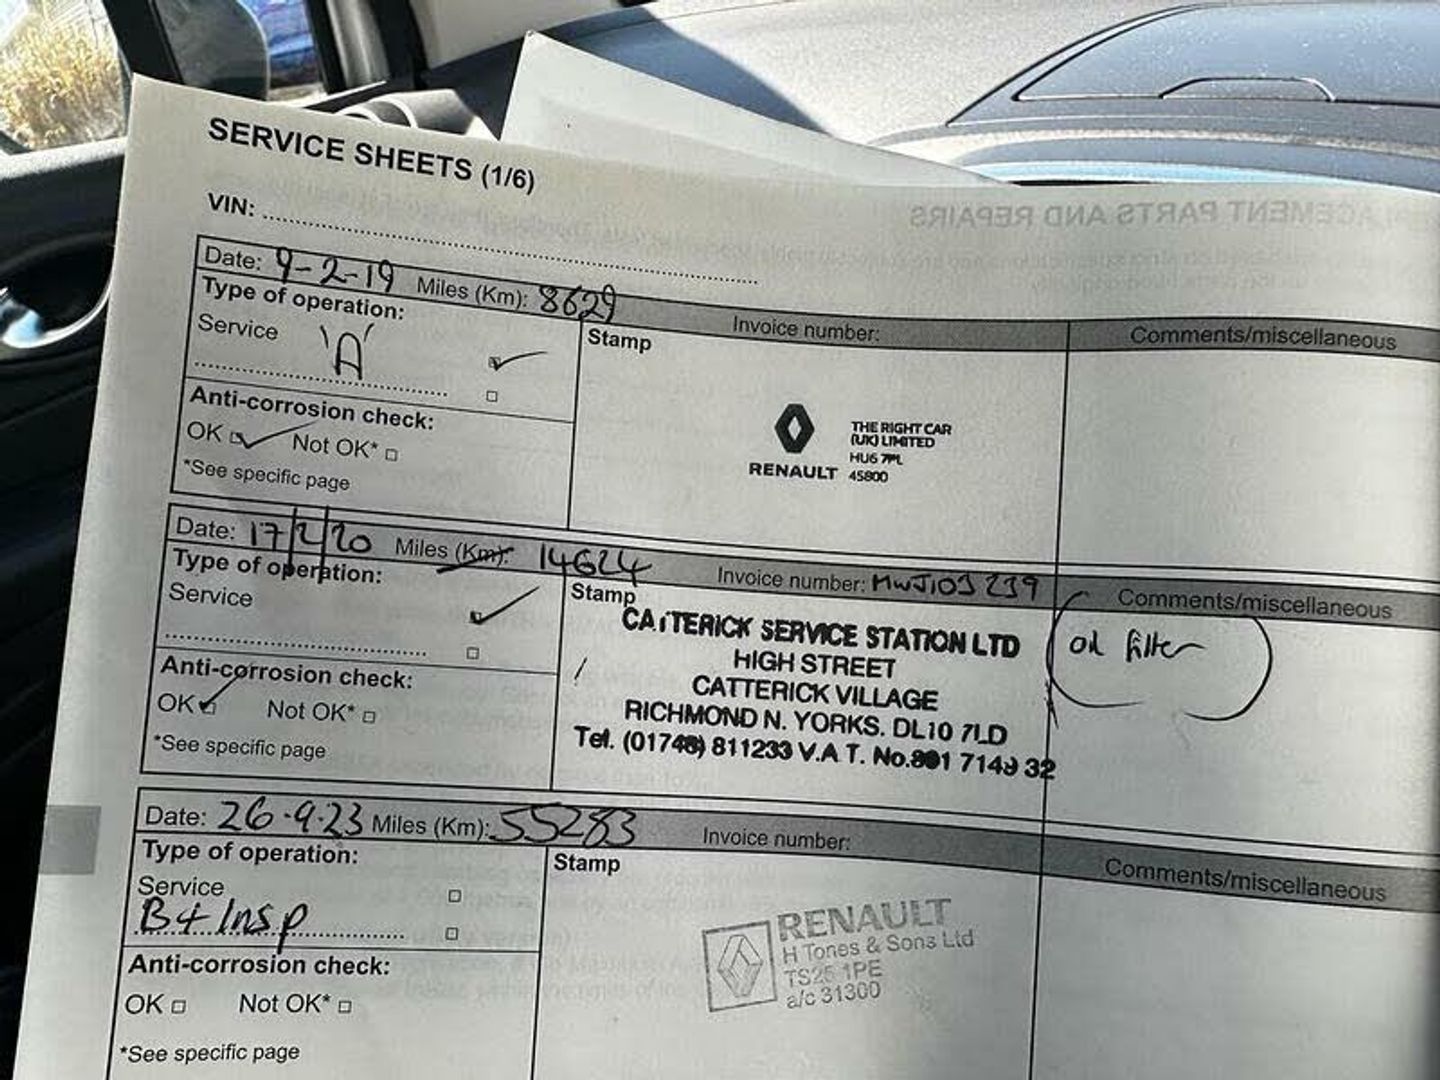 SERVICE SHEETS (1/6)
VIN:
Date: 9-2-19 Miles (Km): 8629 Invoice number: Comments/miscellaneous
Type of operation:
Service 'A'
Stamp
Anti-corrosion check:
OK Not OK*
*See specific page
RENAULT
THE RIGHT CAR
(UK) LIMITED
HU6 7PL
45800
Date: 17/2/20 Miles (Km): 14624 Invoice number: MWJ103239 Comments/miscellaneous
Type of operation:
Service
Stamp
Anti-corrosion check:
OK Not OK*
*See specific page
CATTERICK SERVICE STATION LTD
HIGH STREET
CATTERICK VILLAGE
RICHMOND N. YORKS. DL10 7LD
Tel. (01748) 811233 V.A.T. No. 7149 32
oil filter
Date: 26-9-23 Miles (Km): 55283 Invoice number: Comments/miscellaneous
Type of operation:
Service
B+Insp
Stamp
Anti-corrosion check:
OK Not OK*
*See specific page
RENAULT
H Tones & Sons Ltd
TS25 1PE
a/c 31300
REPLACEMENT PARTS AND REPAIRS